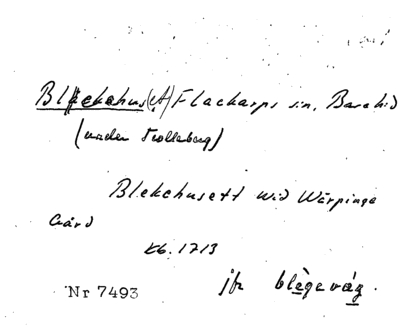 Blekehus(et) Flackarps sn, Bara hd
(under Trolleberg)
Blekehusett wid Wärpinge
Gård
kb. 1713
jfr blègevág.
Nr 7493